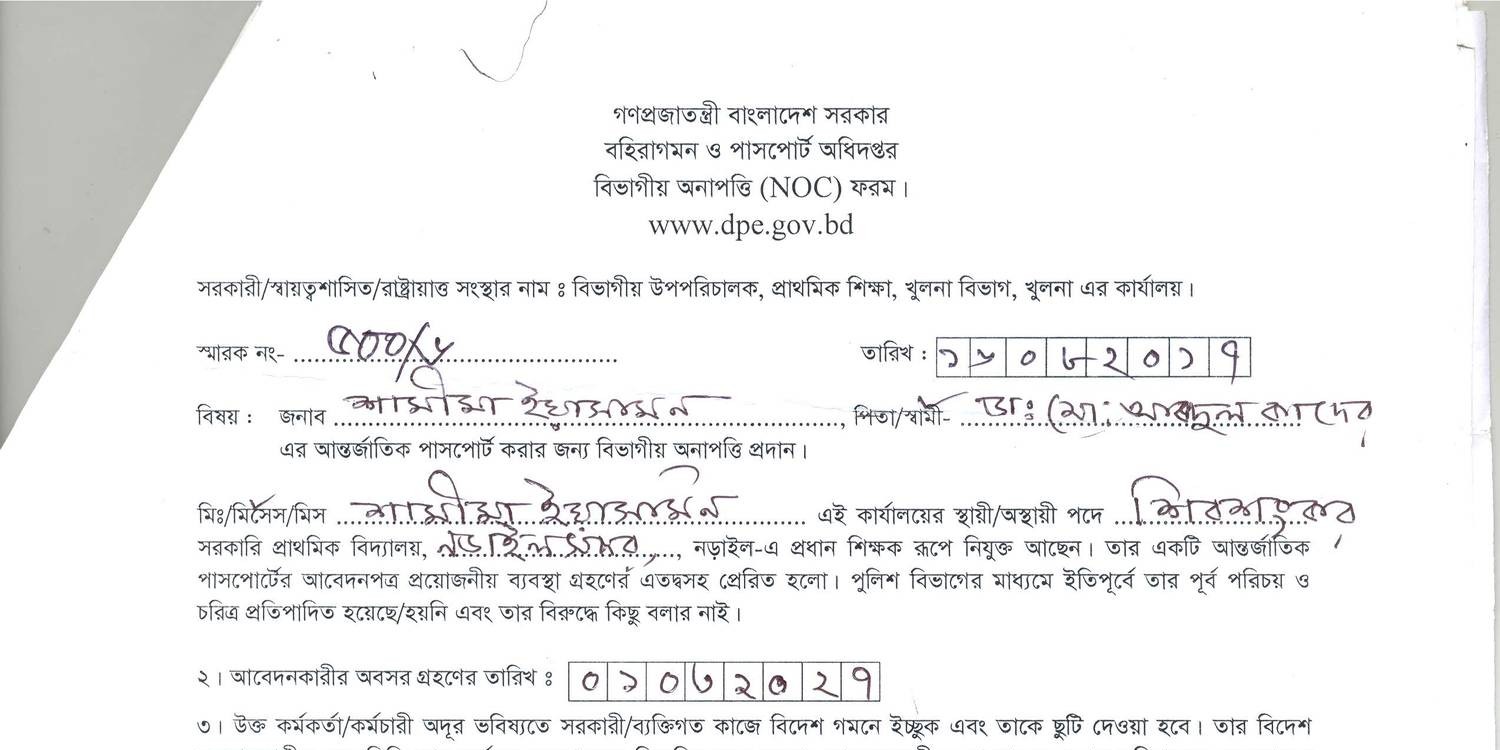 গণপ্রজাতন্ত্রী বাংলাদেশ সরকার
বহিরাগমন ও পাসপোর্ট অধিদপ্তর
বিভাগীয় অনাপত্তি (NOC) ফরম।
www.dpe.gov.bd
সরকারী/স্বায়ত্বশাসিত/রাষ্ট্রায়াত্ত সংস্থার নাম ঃ বিভাগীয় উপপরিচালক, প্রাথমিক শিক্ষা, খুলনা বিভাগ, খুলনা এর কার্যালয়।
স্মারক নং- ৫০০/৮ তারিখ : ১৮০৮২০১৭
বিষয় : জনাব শামীমা ইয়াসমিন, পিতা/স্বামী- ডাঃ মোঃ আবদুল কাদের
এর আন্তর্জাতিক পাসপোর্ট করার জন্য বিভাগীয় অনাপত্তি প্রদান।
মিঃ/মিসেস/মিস শামীমা ইয়াসমিন এই কার্যালয়ের স্থায়ী/অস্থায়ী পদে
সরকারি প্রাথমিক বিদ্যালয়, নড়াইল সদর, নড়াইল-এ প্রধান শিক্ষক রূপে নিযুক্ত আছেন। তার একটি আন্তর্জাতিক
পাসপোর্টের আবেদনপত্র প্রয়োজনীয় ব্যবস্থা গ্রহণের এতদ্বসহ প্রেরিত হলো। পুলিশ বিভাগের মাধ্যমে ইতিপূর্বে তার পূর্ব পরিচয় ও
চরিত্র প্রতিপাদিত হয়েছে/হয়নি এবং তার বিরুদ্ধে কিছু বলার নাই।
২। আবেদনকারীর অবসর গ্রহণের তারিখ ঃ ০১০৩২০২৭
৩। উক্ত কর্মকর্তা/কর্মচারী অদূর ভবিষ্যতে সরকারী/ব্যক্তিগত কাজে বিদেশ গমনে ইচ্ছুক এবং তাকে ছুটি দেওয়া হবে। তার বিদেশ